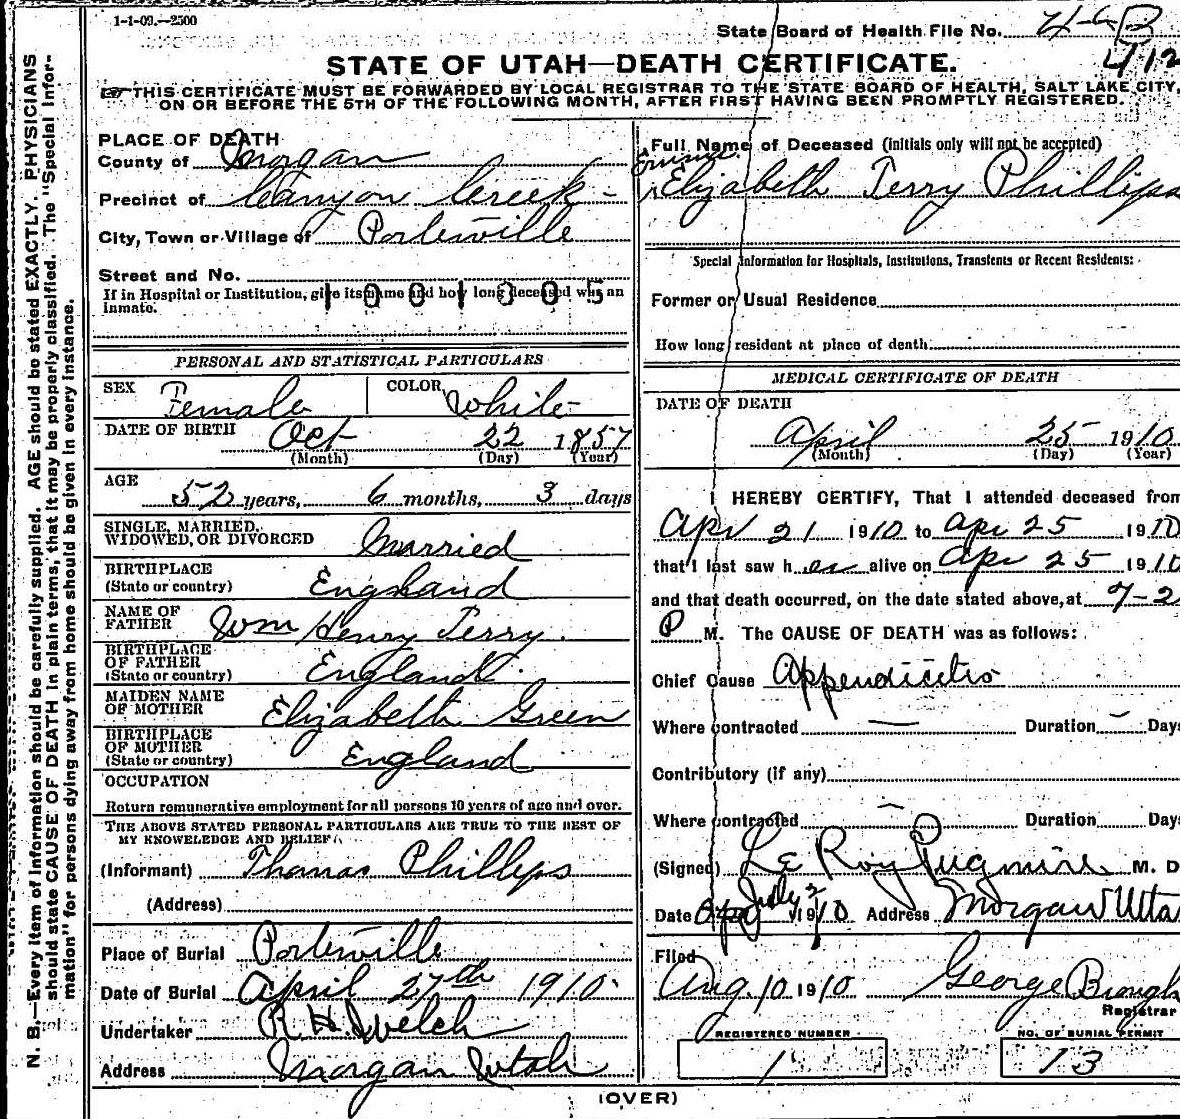 1-1-09.—2500
State Board of Health File No.
STATE OF UTAH—DEATH CERTIFICATE.
THIS CERTIFICATE MUST BE FORWARDED BY LOCAL REGISTRAR TO THE STATE BOARD OF HEALTH, SALT LAKE CITY,
ON OR BEFORE THE 5TH OF THE FOLLOWING MONTH, AFTER FIRST HAVING BEEN PROMPTLY REGISTERED.
N. B.—Every item of information should be carefully supplied. AGE should be stated EXACTLY. PHYSICIANS
should state CAUSE OF DEATH in plain terms, that it may be properly classified. The "Special Infor-
mation" for persons dying away from home should be given in every instance.
PLACE OF DEATH
County of Morgan
Precinct of Canyon Creek -
City, Town or Village of Porterville
Street and No.
If in Hospital or Institution, give its name and how long deceased was an
inmate.
1001305
PERSONAL AND STATISTICAL PARTICULARS
SEX Female COLOR White
DATE OF BIRTH Oct 22 1857
(Month) (Day) (Year)
AGE 52 years, 6 months, 3 days
SINGLE, MARRIED,
WIDOWED, OR DIVORCED Married
BIRTHPLACE
(State or country) England
NAME OF
FATHER Wm Henry Terry.
BIRTHPLACE
OF FATHER
(State or country) England.
MAIDEN NAME
OF MOTHER Elizabeth Green
BIRTHPLACE
OF MOTHER
(State or country) England
OCCUPATION
Return remunerative employment for all persons 10 years of age and over.
THE ABOVE STATED PERSONAL PARTICULARS ARE TRUE TO THE BEST OF
MY KNOWELEDGE AND BELIEF.
(Informant) Thomas Phillips
(Address)
Place of Burial Porterville
Date of Burial April 27th 1910.
Undertaker R. H. Welch
Address Morgan Utah
Full Name of Deceased (initials only will not be accepted)
Emma
Elizabeth Terry Phillips
Special Information for Hospitals, Institutions, Transients or Recent Residents:
Former or Usual Residence
How long resident at place of death
MEDICAL CERTIFICATE OF DEATH
DATE OF DEATH
April 25 1910
(Month) (Day) (Year)
I HEREBY CERTIFY, That I attended deceased from
Apr 21 1910 to Apr 25 1910
that I last saw her alive on Apr 25 1910
and that death occurred, on the date stated above, at 7-2
P M. The CAUSE OF DEATH was as follows:
Chief Cause Appendicitis
Where contracted — Duration – Days
Contributory (if any)
Where contracted Duration Days
(Signed) Le Roy Pugmire M. D
Date July 2 1910 Address Morgan Uta
Filed
Aug. 10 1910 George Brough
Registrar
REGISTERED NUMBER
1
NO. OF BURIAL PERMIT
13
(OVER)